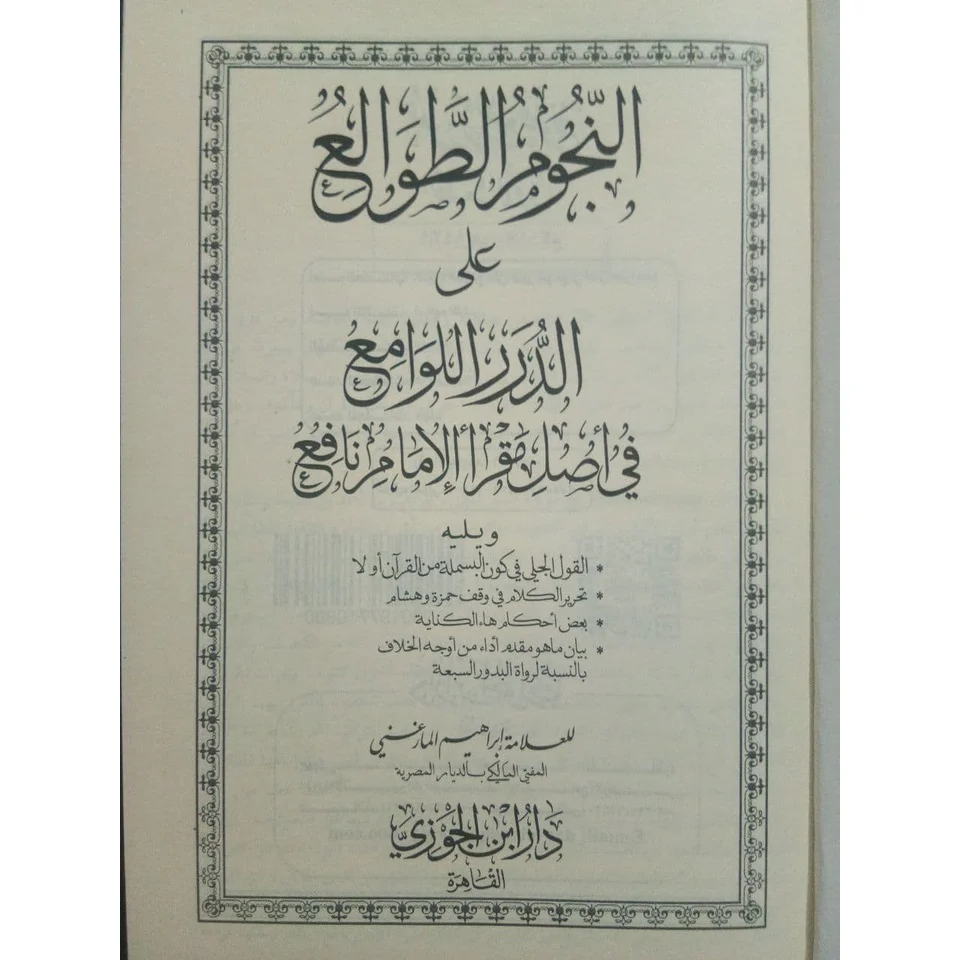 النُّجُومُ الطَّوَالِعُ
على
الدُّرَرِ اللَّوَامِعُ
فِي أَصْلِ مَقْرَأ الإِمَامِ نَافِعُ
ويليه
* القول الجلي في كون البسملة من القرآن أو لا
* تحرير الكلام في وقف حمزة وهشام
* بعض أحكام هاء الكناية
* بيان ما هو مقدم أداء من أوجه الخلاف
بالنسبة لرواة البدور السبعة
للعلامة إبراهيم المارغني
المفتي المالكي بالديار المصرية
دَارُ ابْنِ الْجَوْزِيِّ
القَاهِرَة